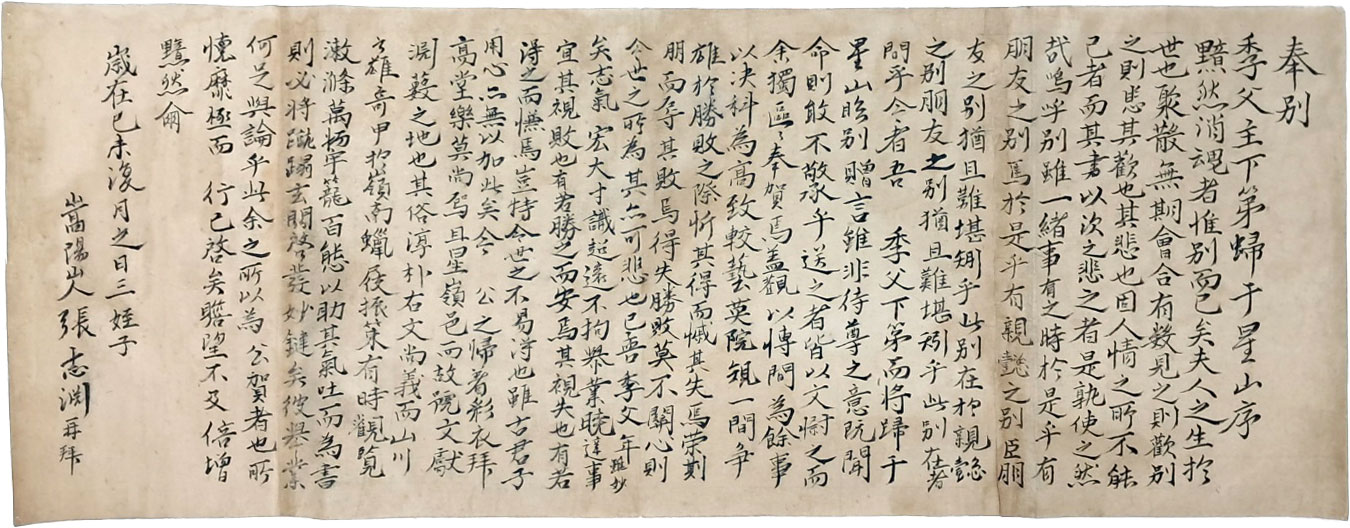 奉別
季父主下第歸于星山序
黯然消魂者惟別而已矣夫人之生於
世也聚散無期會合有數見之則歡別
之則悲其歡也其悲也固人情之所不能
已者而其書以次之悲之者是孰使之然
哉嗚乎別雖一緒事有之時於是乎有
朋友之別焉於是乎有親懿之別臣朋
友之別猶且難堪矧乎此別在於親懿
之別朋友之別猶且難堪矧乎此別在著
問乎今者吾 季父下第而將歸于
星山臨別贈言雖非待尊之意既聞
命則敢不敬承乎送之者皆以文慰之而
余獨區區奉賀焉盖觀以博聞為餘事
以决科為高致較藝英院規一間爭
雄於勝敗之際忻其得而慽其失焉榮刺
朋而辱其敗焉得失勝敗莫不關心則
今世之所為其亦可悲也已吾季父年雖妙
矣志氣宏大才識超遠不拘擧業曉達事
宜其視敗也有若勝之而安焉其視失也有若
得之而憮焉豈特今世之不易得也雖古君子
用心亦無以加此矣今 公之歸着彩衣拜
高堂樂莫尚焉且星嶺邑而故號文獻
淵藪之地也其俗淳朴右文尚義而山川
之雄奇甲於嶺南蠟屐振策有時觀覽
漱滌萬物牢籠百態以助其氣吐而為書
則必將蹴蹋玄關啓發妙鍵矣彼擧業
何足與論乎此余之所以為 公賀者也所
懷靡極而 行已啓矣瞻望不及倍增
黯然爾
歲在己未復月之日三姪子
嵩陽山人張志淵再拜